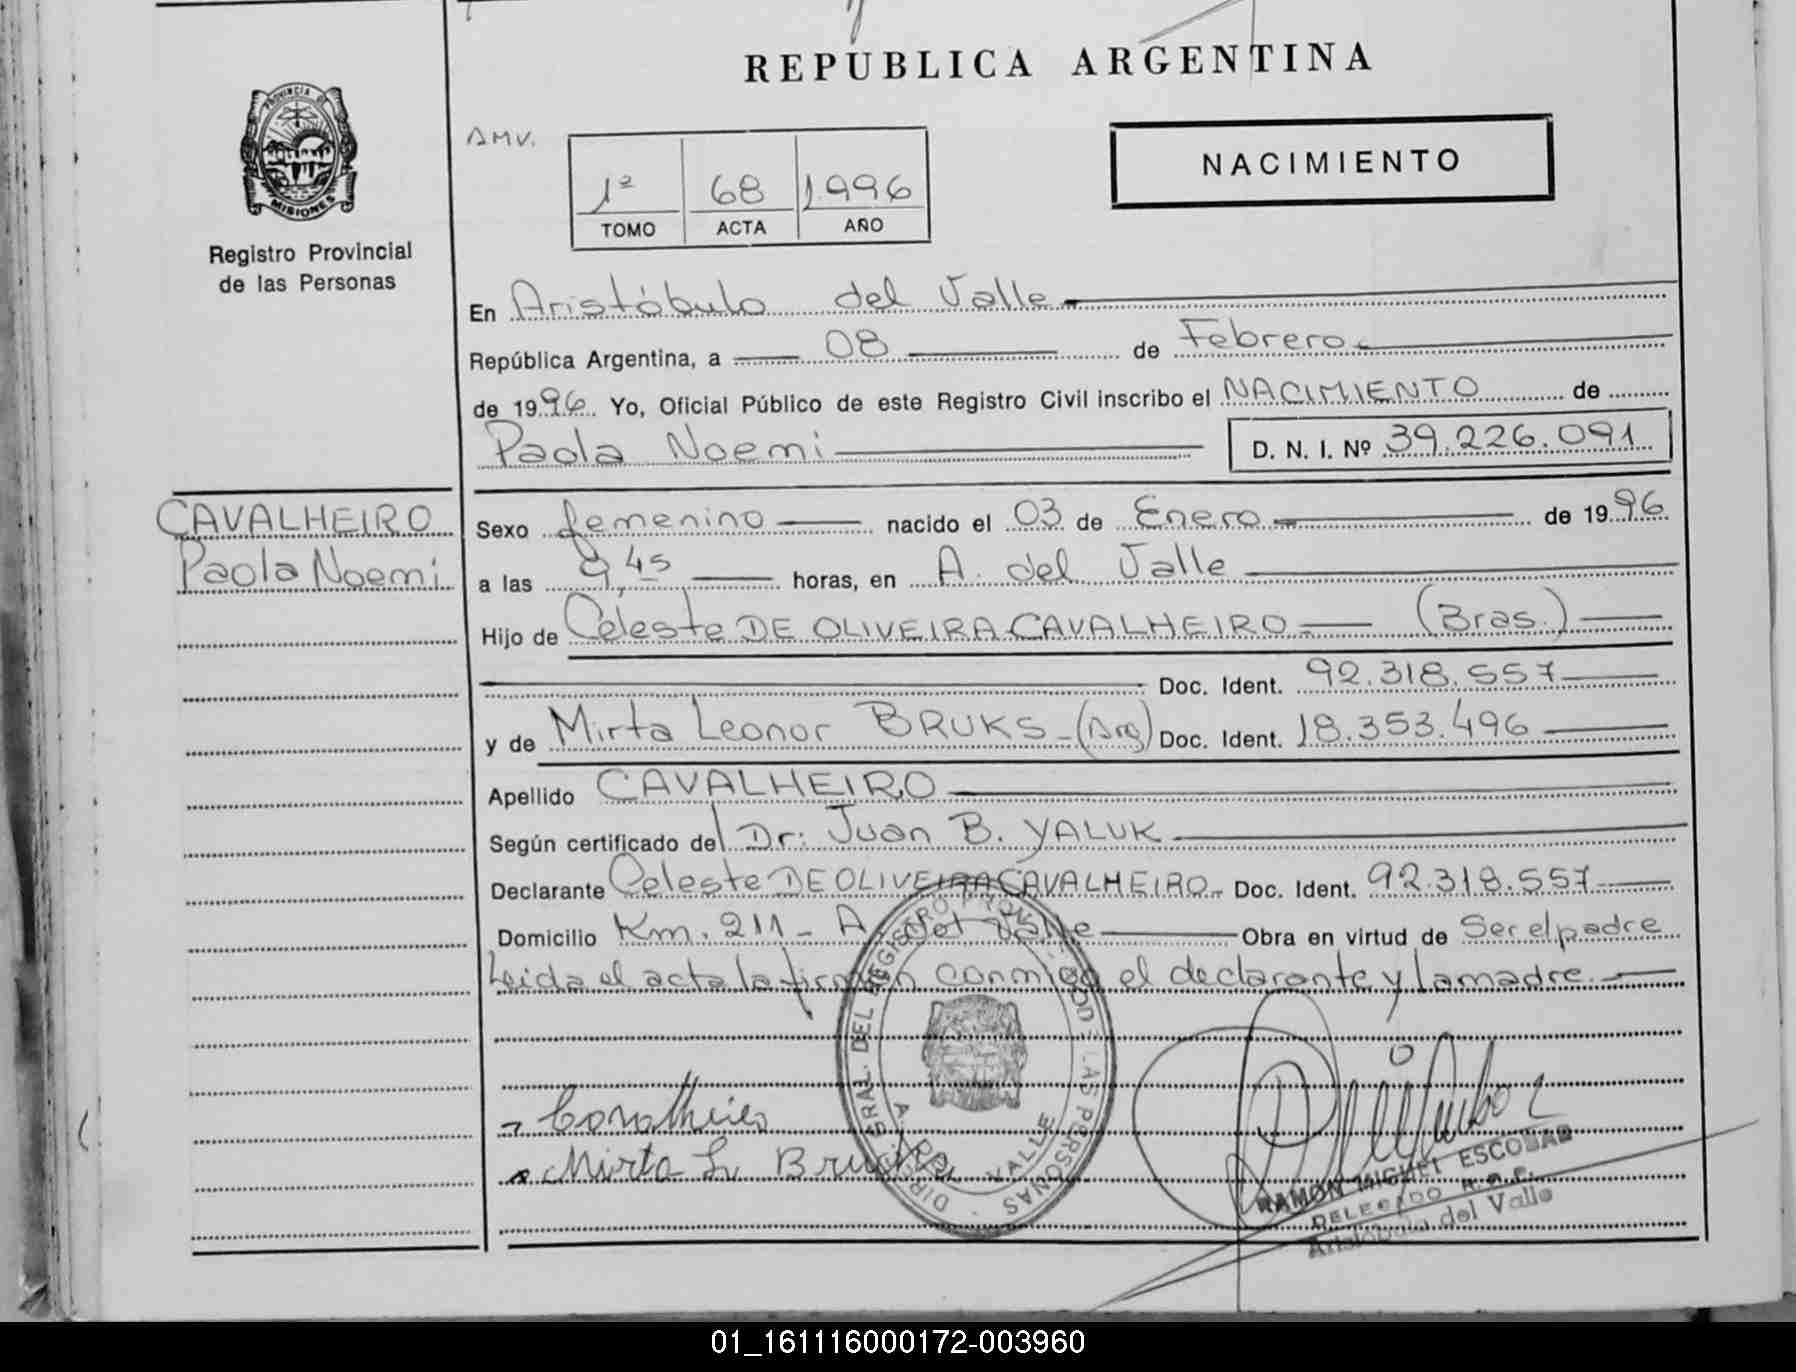 REPUBLICA ARGENTINA
PROVINCIA DE MISIONES
Registro Provincial
de las Personas
AMV.
1º 68 1.996
TOMO ACTA AÑO
NACIMIENTO
En Aristóbulo del Valle
República Argentina, a 08 de Febrero
de 1996 Yo, Oficial Público de este Registro Civil inscribo el NACIMIENTO de
Paola Noemi D. N. I. Nº 39.226.091
CAVALHEIRO
Paola Noemi
Sexo femenino nacido el 03 de Enero de 1996
a las 9,45 horas, en A. del Valle
Hijo de Celeste DE OLIVEIRA CAVALHEIRO (Bras.)
Doc. Ident. 92.318.557
y de Mirta Leonor BRUKS (Arg) Doc. Ident. 18.353.496
Apellido CAVALHEIRO
Según certificado del Dr: Juan B. YALUK
Declarante Celeste DE OLIVEIRA CAVALHEIRO Doc. Ident. 92.318.557
Domicilio Km. 211 - A. del Valle Obra en virtud de Ser el padre
Leida el acta la firman conmigo el declarante y la madre.
Cavalheiro
Mirta L. Bruks
A. DEL VALLE
RAMON MIGUEL ESCOBAR
DELEGADO
Aristóbulo del Valle
01_161116000172-003960